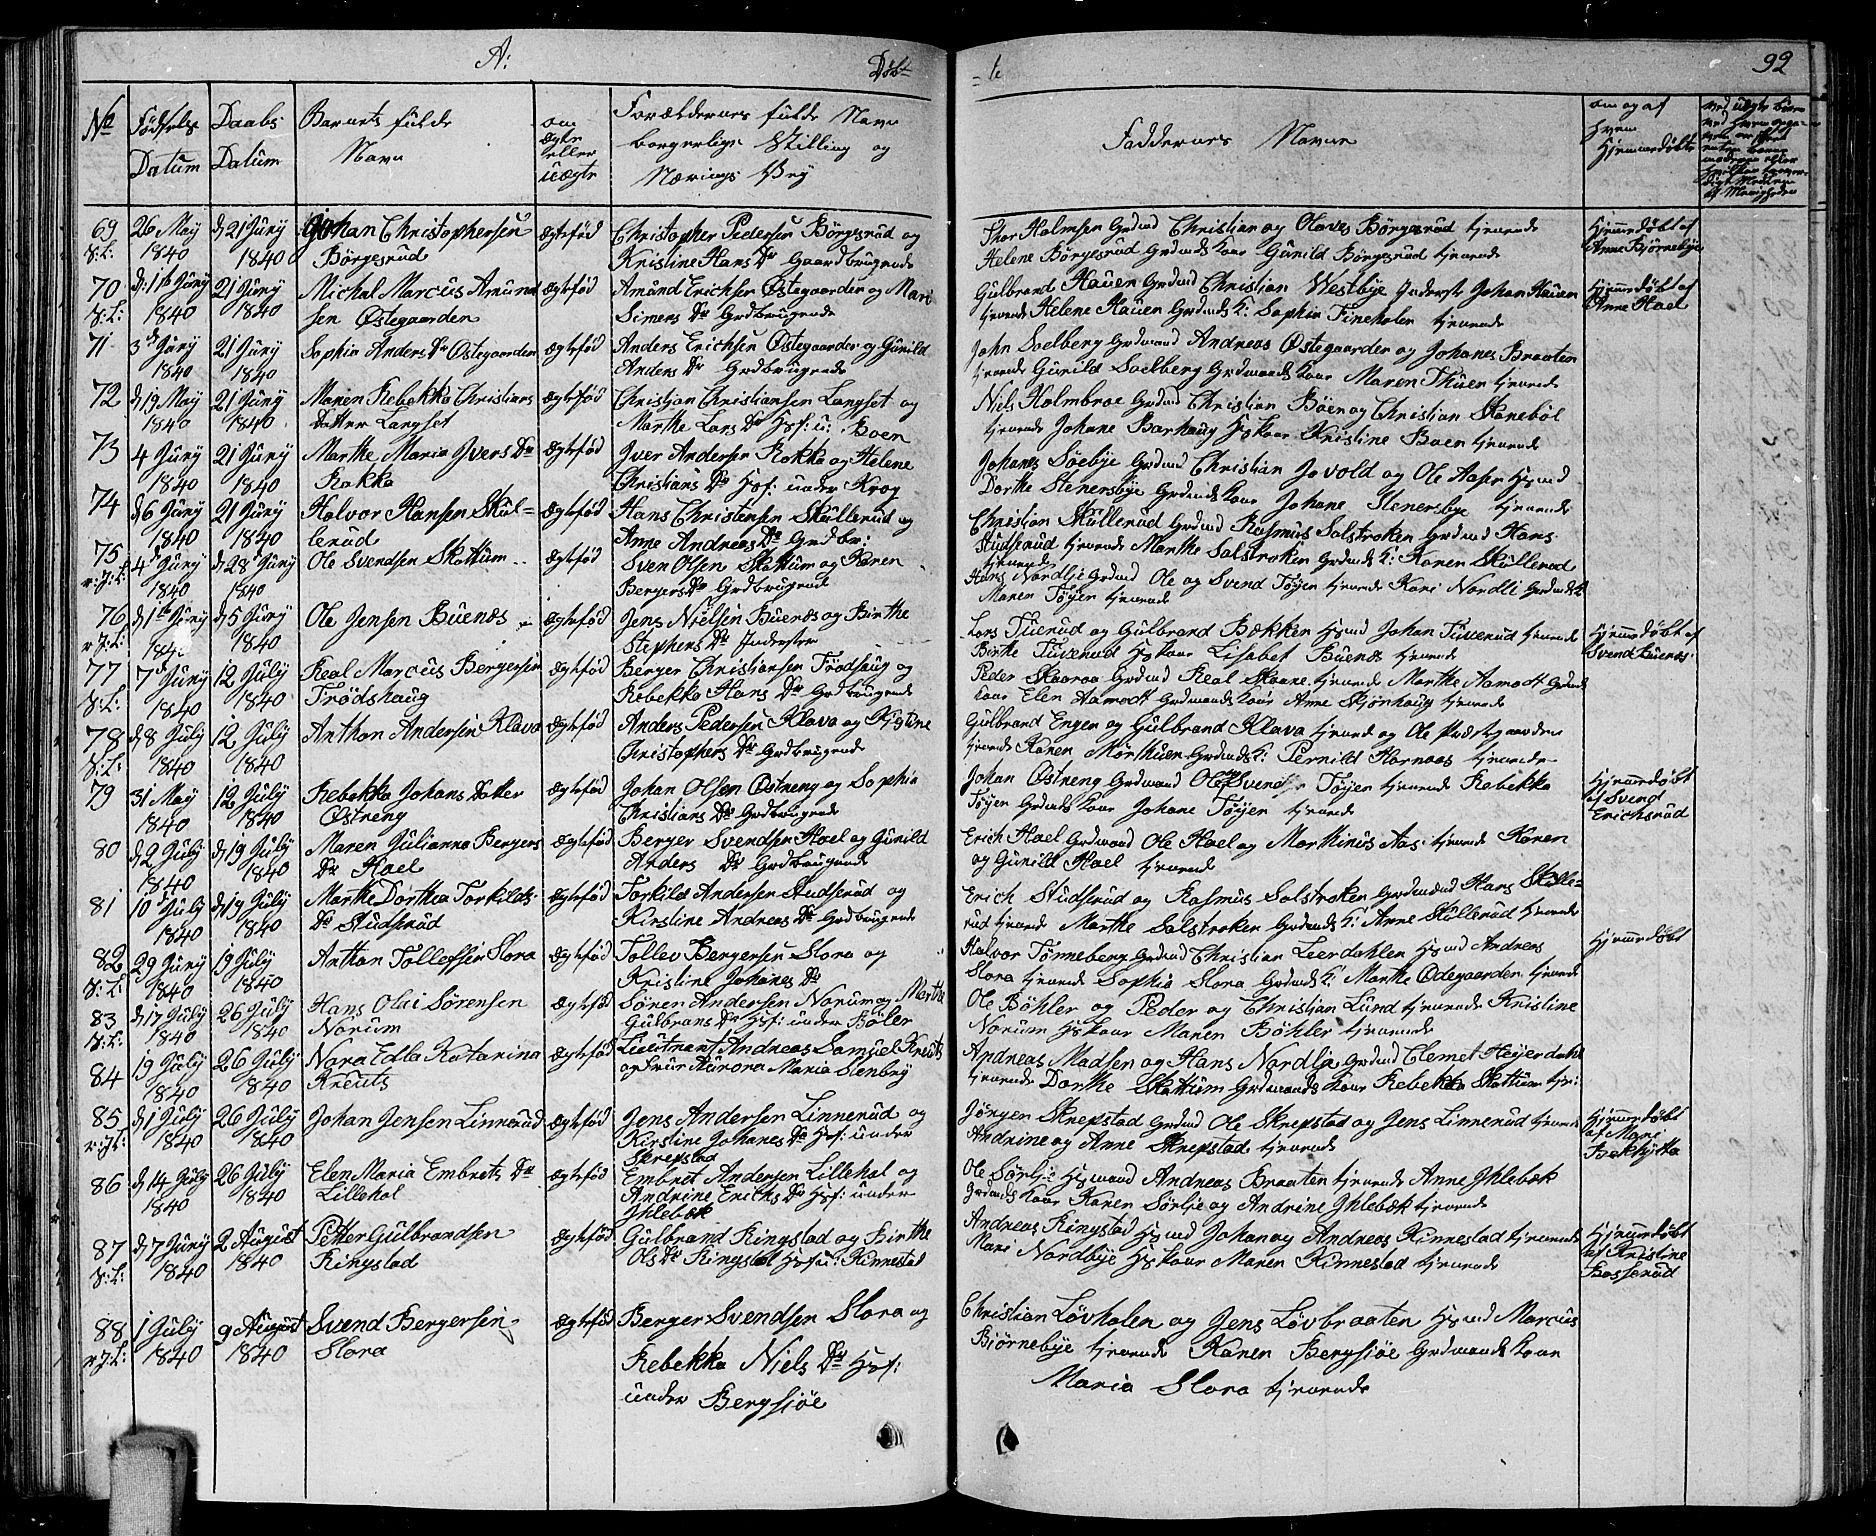 A:
Døbt
92
No
Fødsels Datum
Daabs Datum
Barnets fulde Navn
om ægte eller uægte
Forældrenes fulde Navn borgerlige Stilling og Nærings Vey
Faddernes Navne
om og af hvem hjemmedøbte
69
26 May 1840
d 21 Juny 1840
Johan Christophersen Børgesrud
Ægtefød
Christopher Pedersen Børgesrud og
Kristine Hans Dr Gaardbrugende
Thor Holmsen Grdmd Christian og Olaves Børgesrud tjenende
Helene Børgesrud Grdmds Kone Gunild Børgesrud tjenende
Hjemmedøbt af Anne Bjørnebye
70
d: 1ste Juny 1840
21 Juny 1840
Michal Marcus Amundsen Østegaarden
Ægtefød
Amund Erichsen Østegaarden og Mari
Simens Dr Grdbrugende
Gulbrand Hauen Grdmd Christian Westbye Inderst Johan Hauen
tjenende Helene Hauen Grdmds K: Sophia Fineholen tjenende
Hjemmedøbt af Anne Hael
71
3de Juny 1840
21 Juny 1840
Sophia Anders Dr Østegaarden
Ægtefød
Anders Erichsen Østegaarden og Gunild
Anders Dr Grdbrugende
John Soelberg Grdmand Andreas Østegaarden og Johanes Braaten
tjenende Gunild Soelberg Grdmands Kone Maren Thuen tjenende
72
d 19 May 1840
21 Juny 1840
Maren Rebekka Christians Datter Langset
Ægtefød
Christian Christiansen Langset og
Marthe Lars Dr Hsf: u: Boen
Niels Holmbroe Grdmd Christian Boen og Christian Skanebøl
tjenende Johane Barhaug Hs Kone Kristine Boen tjenende
73
4 Juny 1840
21 Juny 1840
Marthe Maria Ivers Dr Rokka
Ægtefød
Iver Andersen Rokka og Helene
Christians Dr Hsf: under Krog
Johanes Soebye Grdmd Christian Jovold og Ole Aaser Hsmd
Dorthe Stenersbye Grdmds Kone Johane Stenersbye tjenende
74
d 6 Juny 1840
21 Juny 1840
Halvor Hansen Skullerud
Ægtefød
Hans Christensen Skullerud og
Anne Andreas Dr Grdbr:
Christian Skullerud Grdmd Rasmus Solstroken Grdmd Hans
Studsrud tjenende Marthe Solstroken Grdmds K: Karen Skullerud
tjenende
75
4de Juny 1840
d 28 Juny 1840
Ole Svendsen Skattum
Ægtefød
Sven Olsen Skattum og Karen
Bergers Dr Grdbrugende
Hans Nordlie Grdmd Ole og Svend Tøyen tjenende Kari Nordli Grdmds K
Maren Tøyen tjenende
76
d 1ste Juny 1840
d 5 July 1840
Ole Jensen Buenæs
Ægtefød
Jens Nielsen Buenæs og Birthe
Stephens Dr Inderster
Lars Tuerud og Gulbrand Bækken Hsmd Johan Tuverud tjenende
Birthe Tuverud Hs Kone Lisabet Buenæs tjenende
Hjemmedøbt af Svend Buenæs
77
7de Juny 1840
12 July 1840
Real Marcus Bergersen Frødshaug
Ægtefød
Berger Christiansen Frødshaug og
Rebekka Hans Dr Grdbrugende
Peder Skaaraa Grdmd Real Skaane tjenende Marthe Aamodt Grdmds
Kone Elen Aamodt Grdmands Kone Anne Skjønhaug tjenende
78
d 8 July 1840
12 July 1840
Anthon Andersen Klava
Ægtefød
Anders Pedersen Klava og Kjestine
Christophers Dr Grdbrugende
Gulbrand Enger og Gulbrand Klava tjenende og Ole Præstgaarden
tjenende Karen Morthuen Grdmds K: Pernild Hornæs tjenende
79
31 May 1840
12 July 1840
Rebekka Johans Datter Østreng
Ægtefød
Johan Olsen Østreng og Sophia
Christians Dr Grdbrugende
Johan Østreng Grdmand Ole og Svend Tøyen tjenende Rebekka
Tøyen Grdmds Kone Johane Tøyen tjenende
Hjemmedøbt af Svend Erichsrud
80
d 2 July 1840
d 19 July 1840
Maren Julianna Bergers Dr Hael
Ægtefød
Berger Svendsen Hael og Gunild
Anders Dr Grdbrugende
Erich Hael Grdmand Ole Hael og Marthinus Aas tjenende Karen
og Gunild Hael tjenende
81
10de July 1840
d 19 July 1840
Marthe Dorthea Torkilds Dr Studsrud
Ægtefød
Torkild Andersen Studsrud og
Kirstine Andreas Dr Grdbrugende
Erich Studsrud og Rasmus Solstroken Grdmænd Hans Skulle-
rud tjenende Marthe Solstroken Grdmds K: Anne Skullerud tjenende
82
29 Juny 1840
19 July 1840
Anthon Tollefsen Slora
Ægtefød
Tollev Bergersen Slora og
Kristine Johanes Dr
Halvor Tønneberg Grdmd Christian Leerdahlen Hsmd Andreas
Slora tjenende Sophia Slora Grdmds K: Marthe Ødegaarden tjenende
Hjemmedøbt
83
d 17 July 1840
26 July 1840
Hans Olai Sørensen Norum
Ægtefød
Søren Andersen Norum og Marthe
Gulbrans Dr Hsf: under Bøler
Ole Bøhler og Peder og Christian Lund tjenende Kristine
Norum Hs Kone Maren Bøhler tjenende
84
19 July 1840
26 July 1840
Nora Edla Katarina Kreutz
Ægtefød
Lieutnant Andreas Samuel Kreutz
og Frue Aurora Maria Stenbry
Andreas Madsen og Hans Nordlie Grdmd Clemet Heyerdahl
tjenende Dorthe Skattum Grdmands Kone Rebekka Skattum tje:
85
d 1 July 1840
26 July 1840
Johan Jensen Linnerud
Ægtefød
Jens Andersen Linnerud og
Kirstine Johanes Dr Hsf: under
Skrepstad
Jørgen Skrepstad Grdmd Ole Skrepstad og Jens Linnerud tjenende
Andrine og Anne Skrepstad tjenende
Hjemmedøbt af Mari Bækhytta
86
d 14 July 1840
26 July 1840
Elen Maria Embrets Dr Lillehol
Ægtefød
Embret Andersen Lillehol og
Andrine Erichs Dr Hsf: under
Ihlebæk
Ole Sørlie Hsmand Andreas Braaten tjenende Anne Ihlebæk
Grdmds Kone Karen Sørlie og Andrine Ihlebæk tjenende
87
d 7 Juny 1840
2 August 1840
Petter Gulbrandsen Ringstad
Ægtefød
Gulbrand Ringstad og Birthe
Ols Dr Ringstad Hsf u: Kinnestad
Andreas Ringstad Hsmd Johan og Andreas Kinnestad tjenende
Mari Nordbye Hs Kone Maren Kinnestad tjenende
Hjemmedøbt af Kristine Basserud
88
1 July 1840
9 August 1840
Svend Bergersen Slora
Ægtefød
Berger Svendsen Slora og
Rebekka Niels Dr Hsf:
under Bergsjøe
Christian Løvholen og Jens Løvbraaten Hsmd Marcus
Bjørnebye tjenende Karen Bergsjøe Grdmands Kone
Maria Slora tjenende